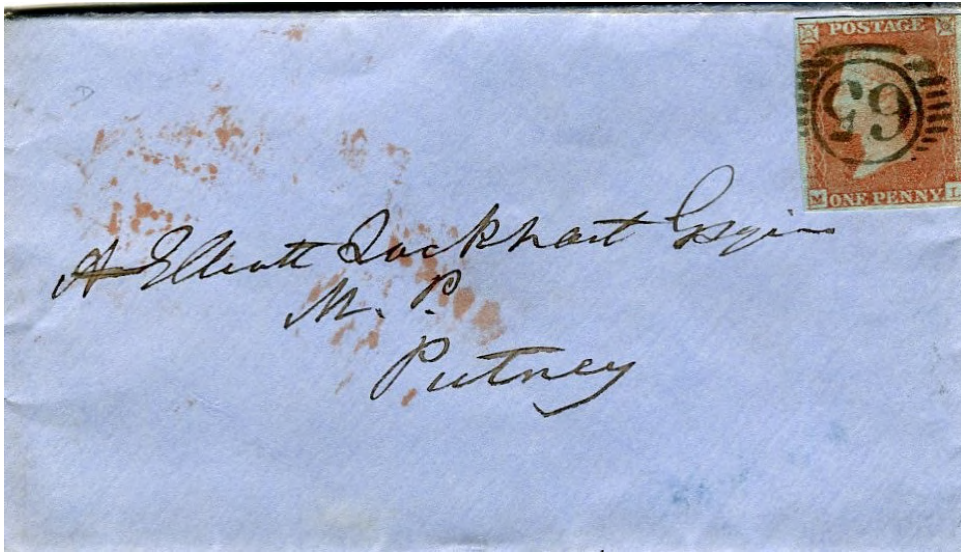 POSTAGE
M ONE PENNY L
A Elliott Lockhart Esquire
M. P.
Putney